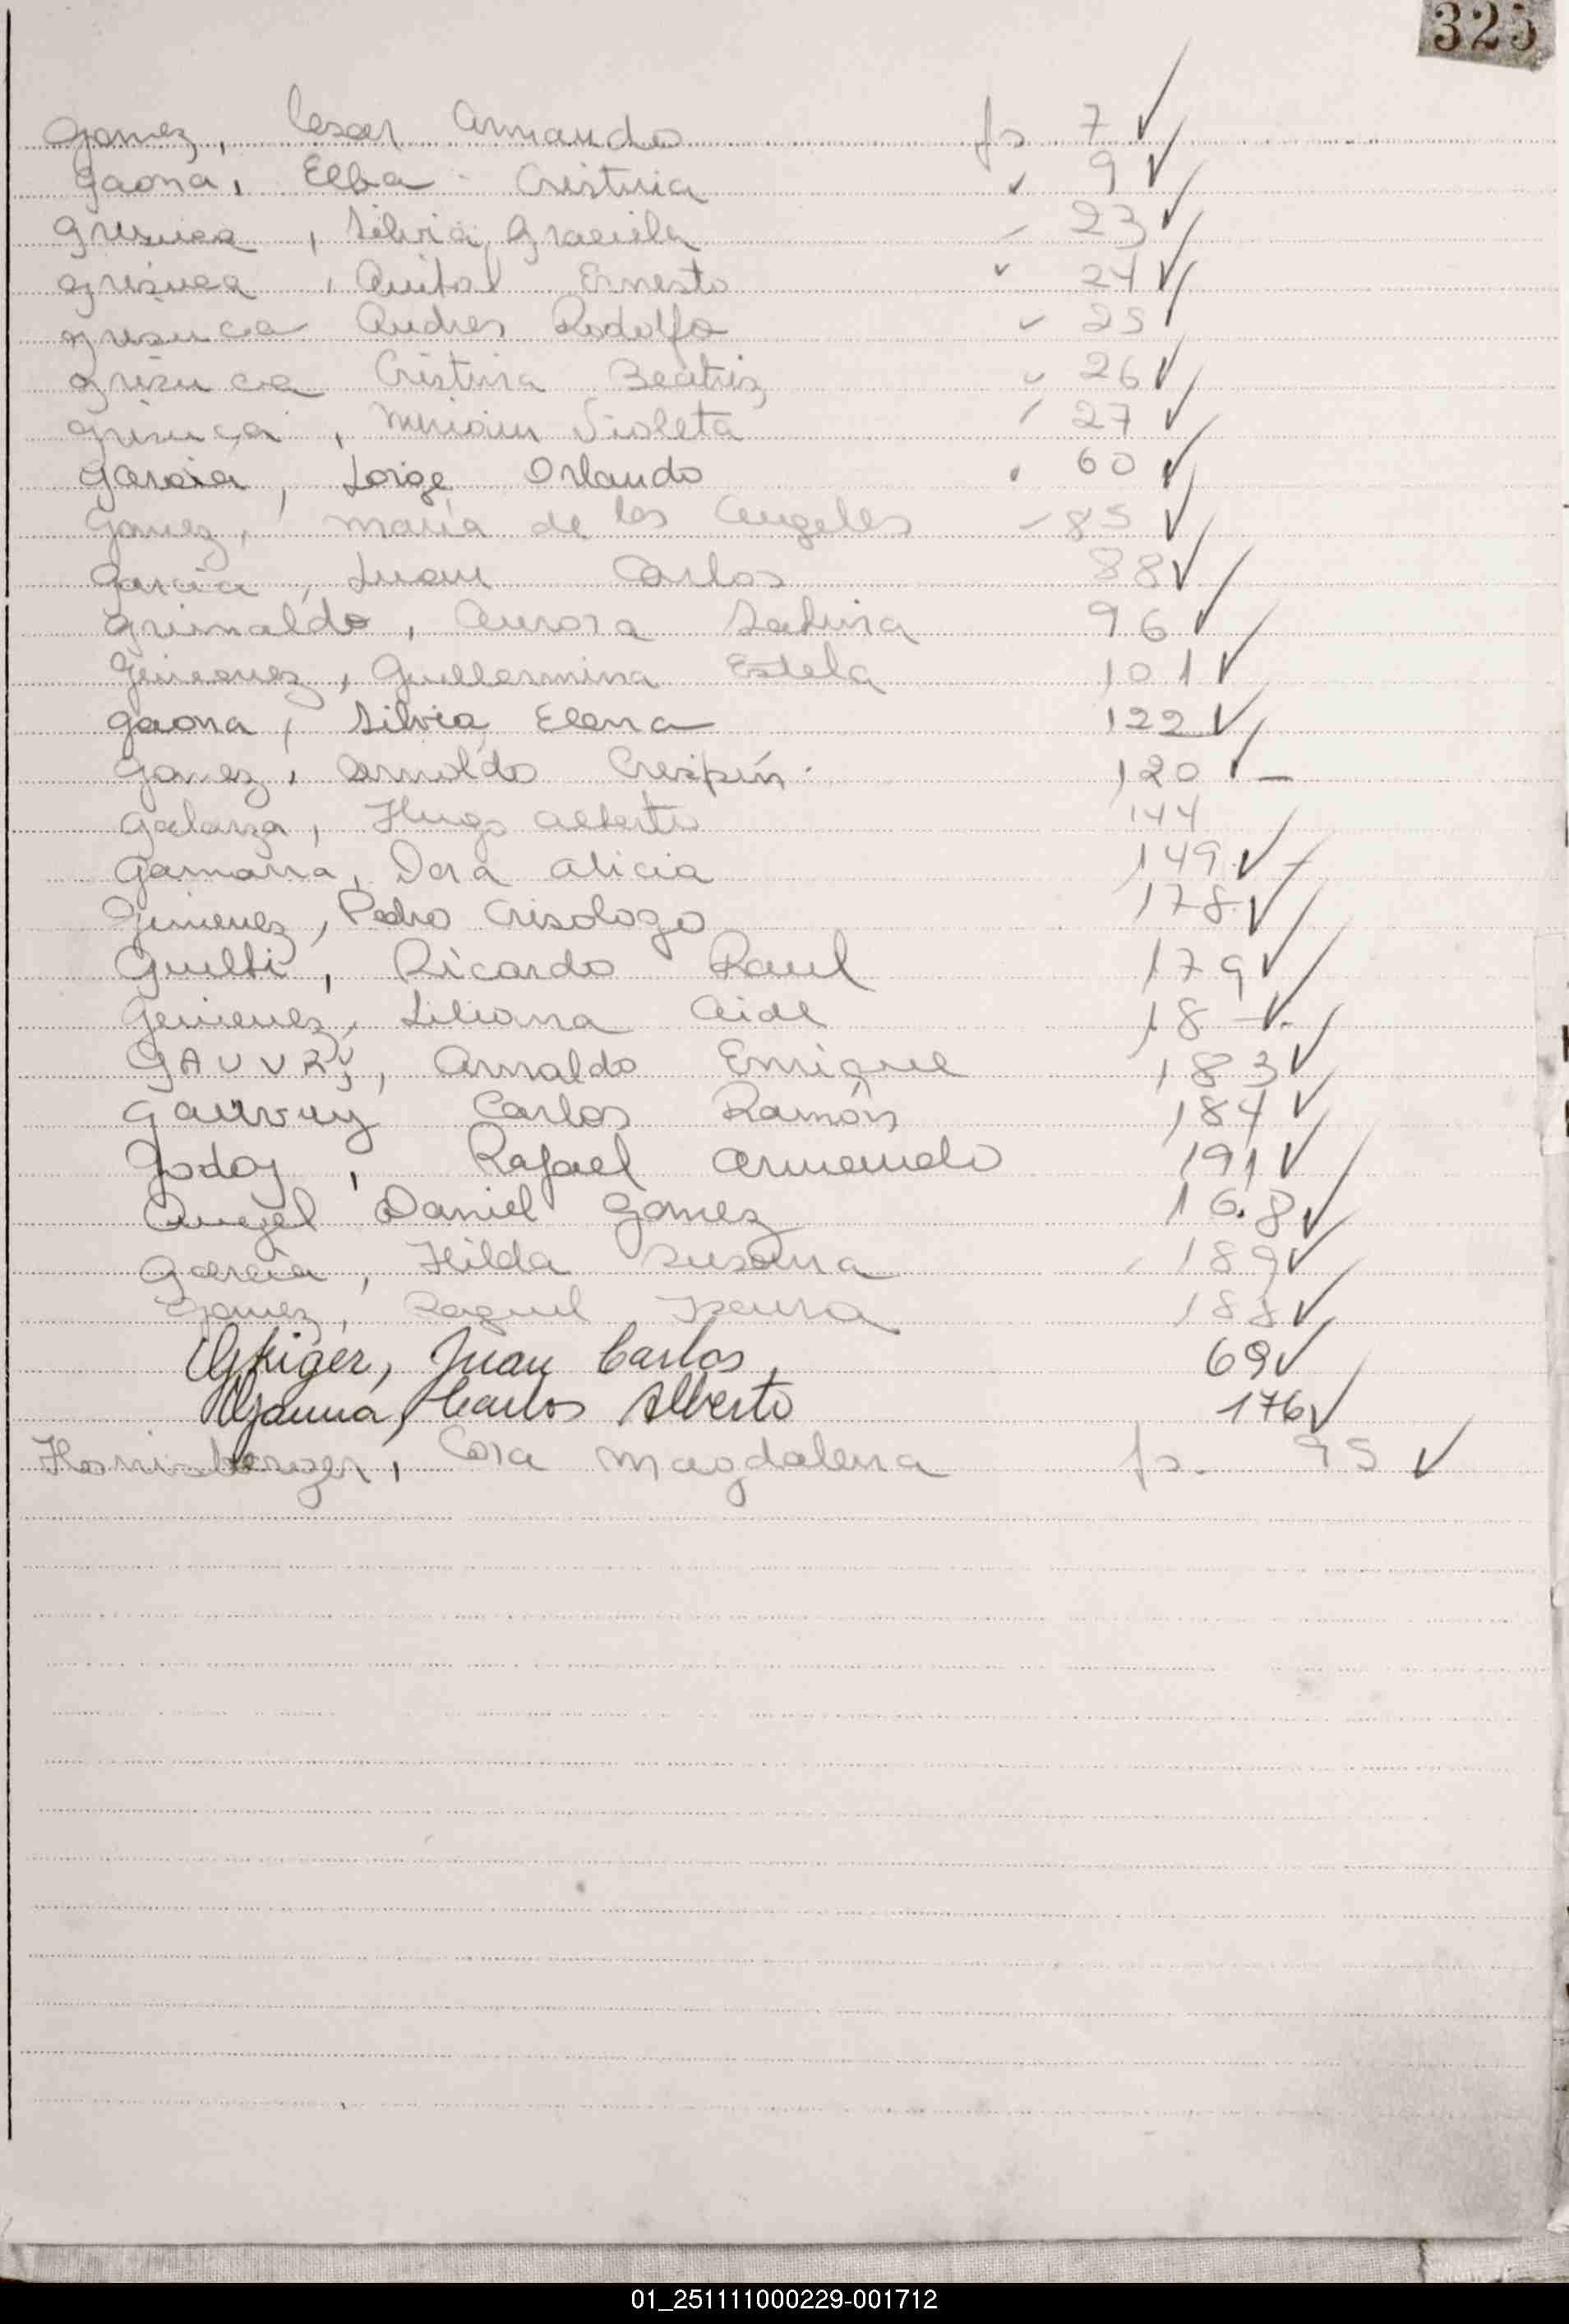 325
Gomez, Cesar Armando fs 7 ✓
Gaona, Elba Cristina " 9 ✓
Grisuca, Silvia Graciela " 23 ✓
Grisuca, Anibal Ernesto " 24 ✓
Grisuca Andres Rodolfo " 25 ✓
Grisuca Cristina Beatriz " 26 ✓
Grisuca, Miriam Violeta " 27 ✓
Garcia, Jorge Orlando " 60 ✓
Gomez, Maria de los Angeles " 85 ✓
Garcia, Juan Carlos 88 ✓
Grimaldo, Aurora Sabina 96 ✓
Gimenez, Guillermina Estela 101 ✓
Gaona, Silvia Elena 122 ✓
Gomez, Arnoldo Crespín 120 ✓ -
Galarza, Hugo Alberto 144
Gamarra, Dora Alicia 149 ✓
Gimenez, Pedro Crisologo 178 ✓
Ricardo Raul 179 ✓
Gimenez, Liliana Aide 18 ✓
GAUVRY, Arnaldo Enrique 183 ✓
Gauvry Carlos Ramón 184 ✓
Godoy, Rafael Armando 191 ✓
Angel Daniel Gomez 168 ✓
Garcia, Hilda Susana 189 ✓
Gomez, Raquel Isaura 188 ✓
Juan Carlos 69 ✓
Carlos Alberto 176 ✓
Cora Magdalena fs. 95 ✓
01_251111000229-001712